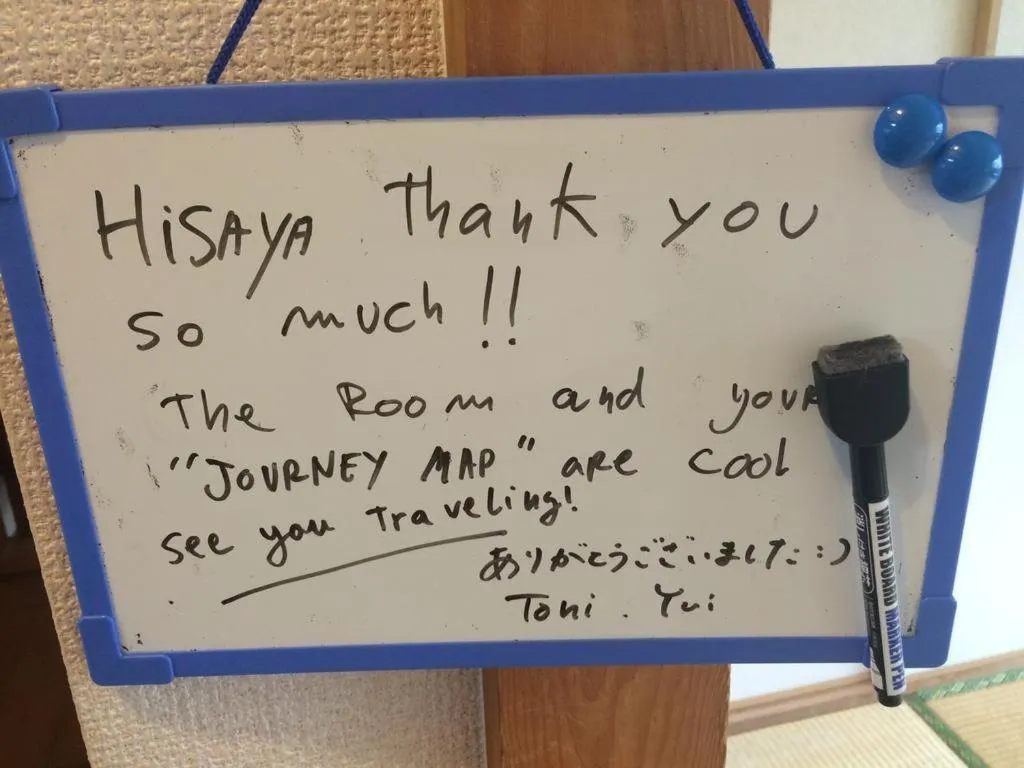 HiSAYA Thank you
so much!!
The Room and your
"JOURNEY MAP" are cool
see you traveling!
ありがとうございました :)
Toni . Yui
WHITE BOARD MARKER PEN